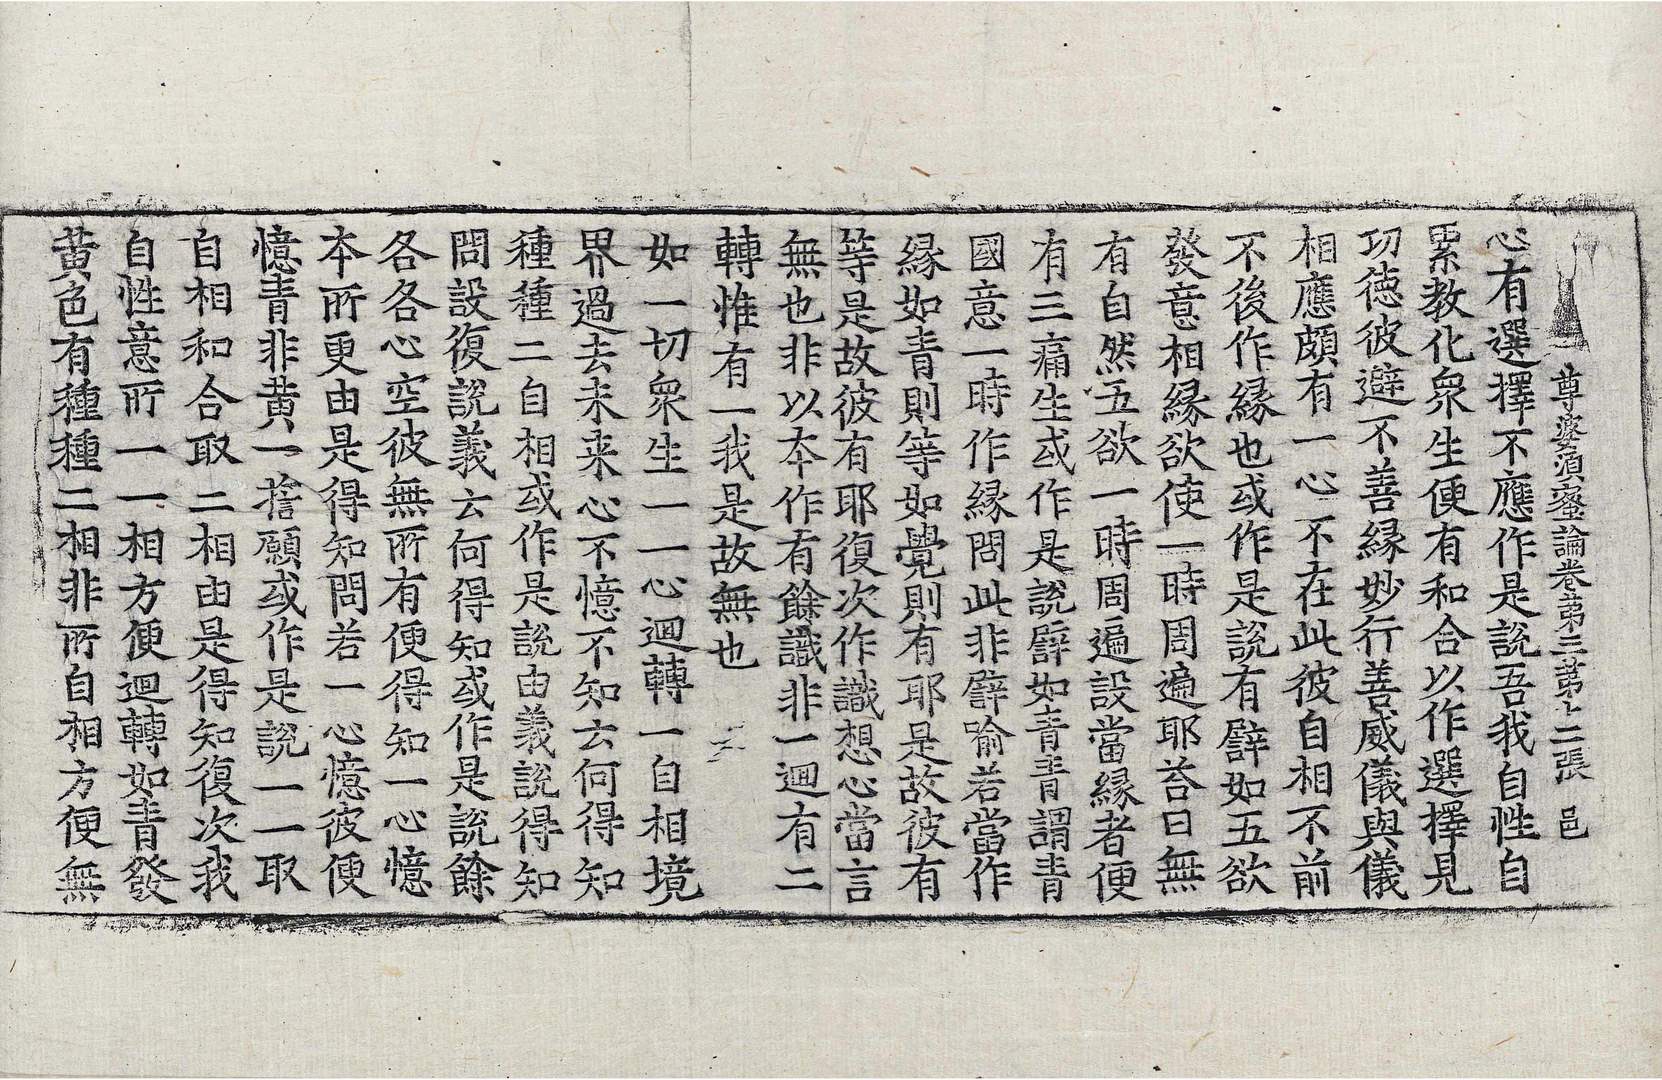 尊婆須蜜論卷第三第十二張 邑
心有選擇不應作是說吾我自性自
累教化衆生便有和合以作選擇見
功徳彼避不善緣妙行善威儀與儀
相應頗有一心不在此彼自相不前
不後作緣也或作是說有譬如五欲
發意相緣欲使一時周遍耶荅曰無
有自然五欲一時周遍設當緣者便
有三痛生或作是說譬如青青謂青
國意一時作緣問此非譬喻若當作
緣如青則等如覺則有耶是故彼有
等是故彼有耶復次作識想心當言
無也非以本作有餘識非一迴有二
轉惟有一我是故無也
如一切衆生一一心迴轉一自相境
界過去未来心不憶不知云何得知
種種二自相或作是說由義說得知
問設復說義云何得知或作是說餘
各各心空彼無所有便得知一心憶
本所更由是得知問若一心憶彼便
憶青非黄一捨願或作是說一一取
自相和合取二相由是得知復次我
自性意所一一相方便迴轉如青發
黄色有種種二相非所自相方便無